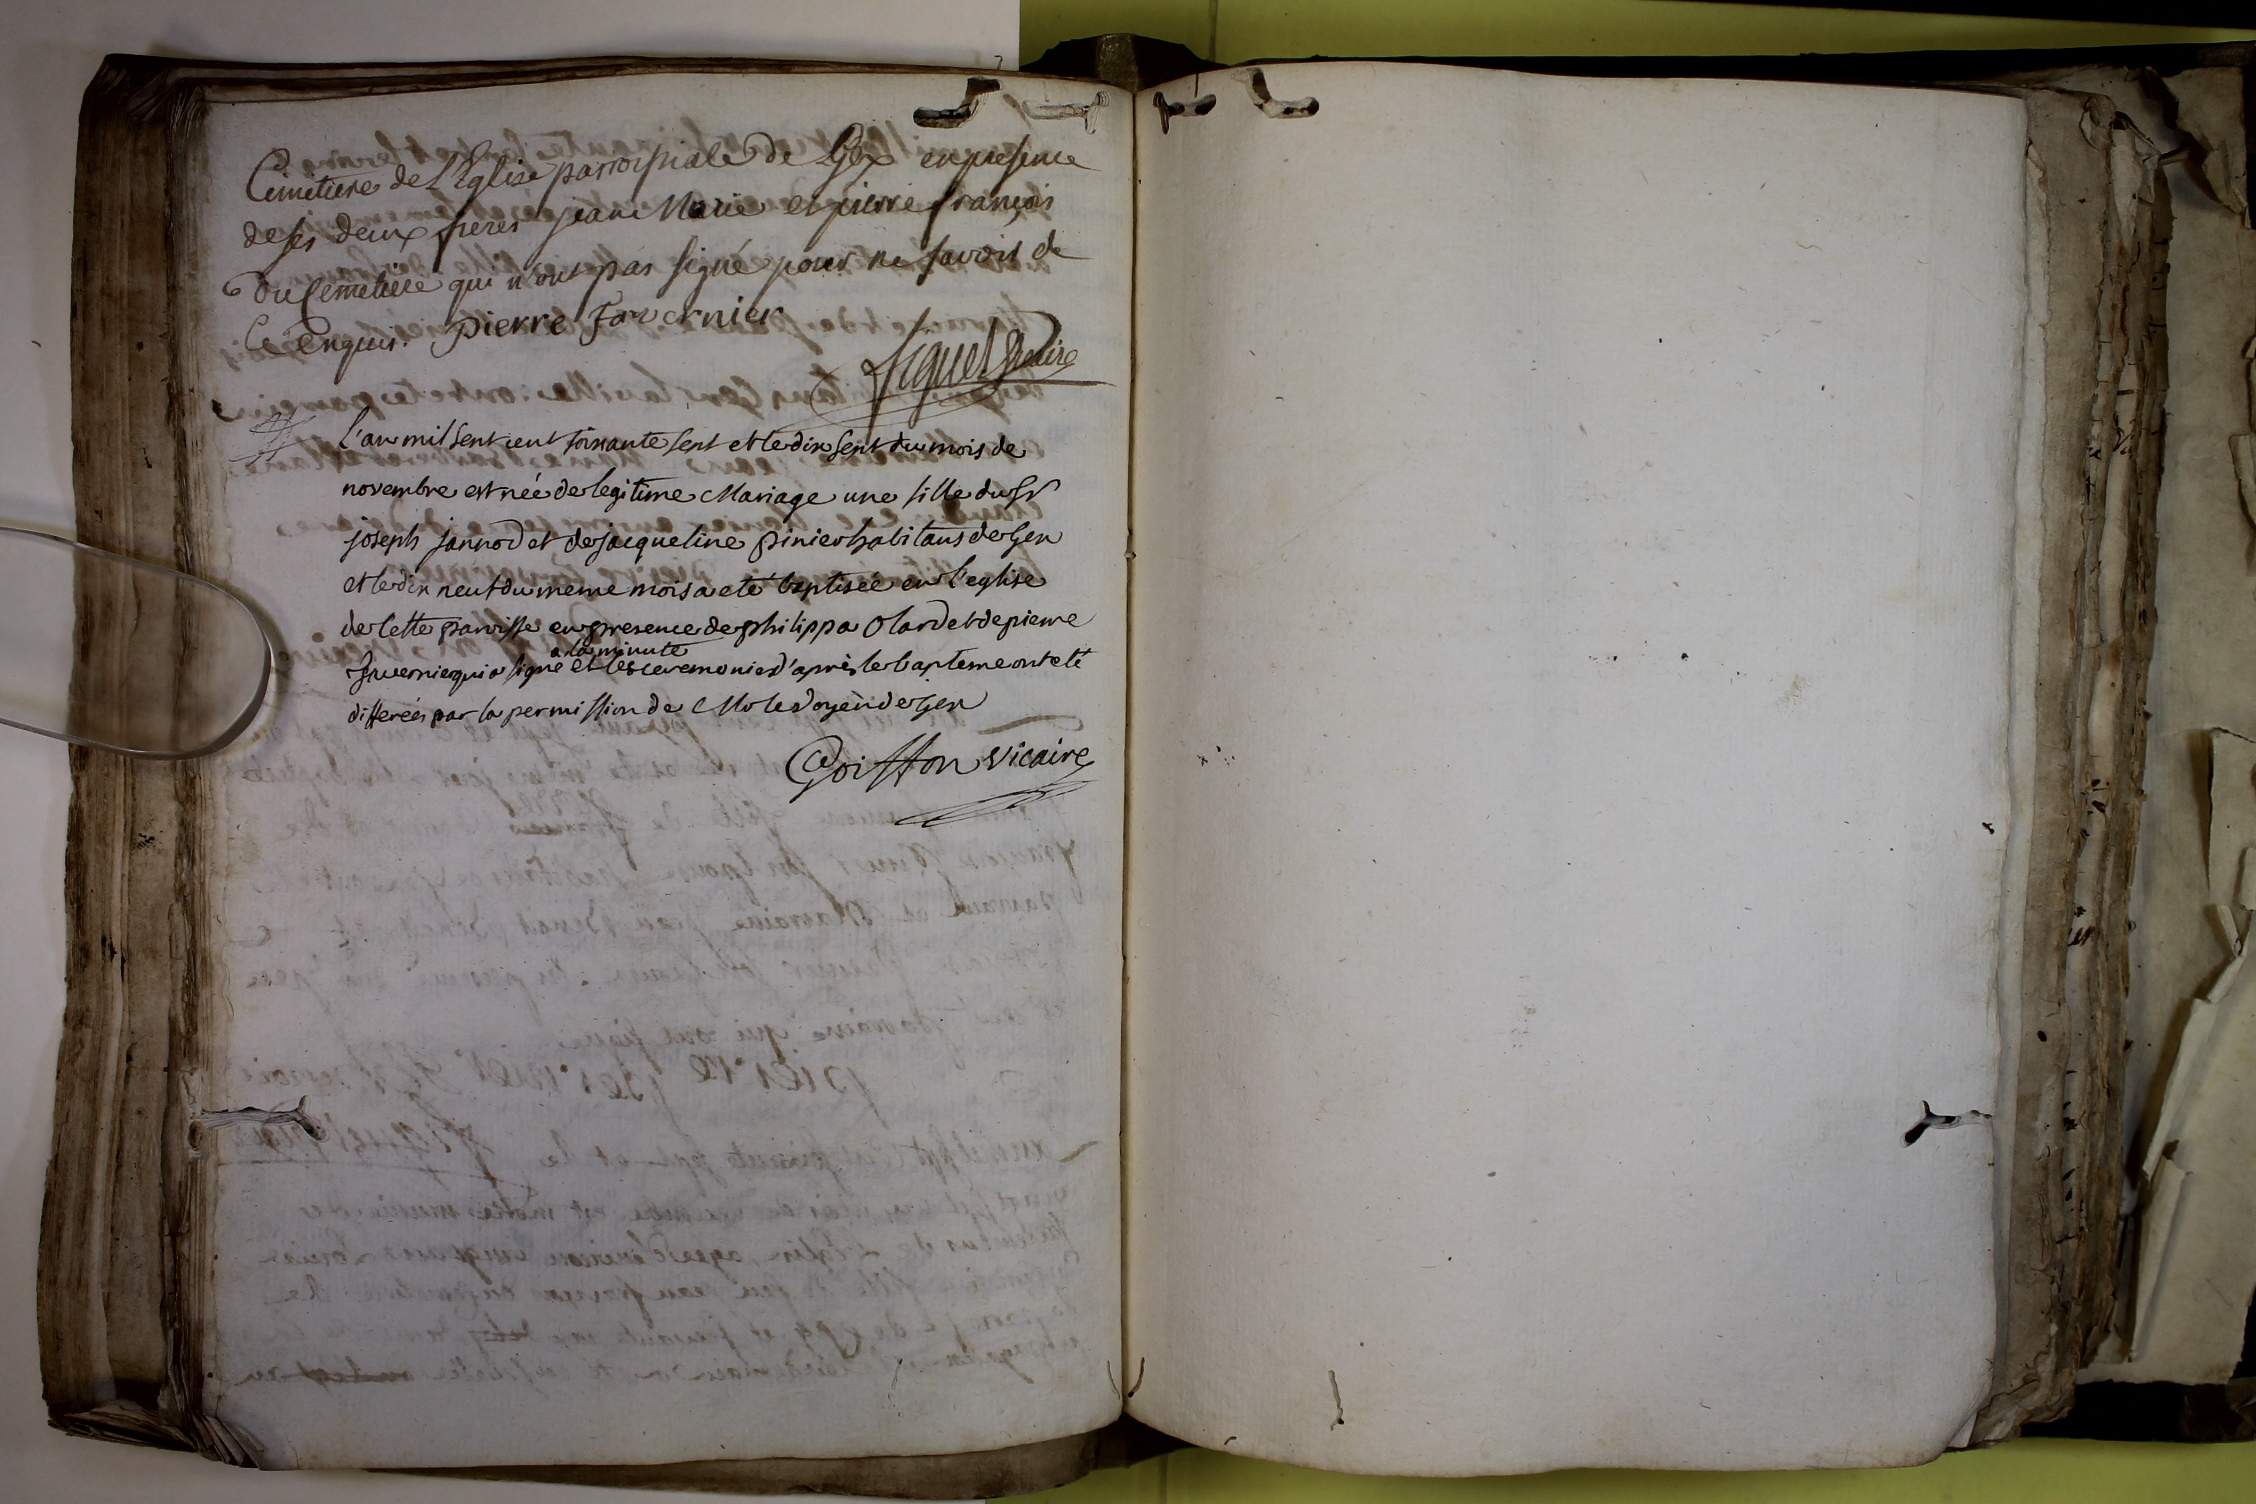 Cimetiere de L'Eglise parroissiale de Gex en presence
de ses deux freres jean Marie et pierre françois
Du Cemetiere qui n'ont pas signé pour ne savoir de
Ce Enquis. pierre Tavernier
Viquet Vicaire
l'an mil sept cent soixante sept et le dix sept du mois de
novembre est née de legitime Mariage une fille du Sr
joseph jannod et de jacqueline Pinier habitans de Gex
et le dix neuf du meme mois a eté baptisée en l'eglise
de cette paroisse en presence de philippa Olard et de pierre
a la minute
Tavernier qui a signé et les ceremonies d'après le bapteme ont eté
differées par la permission de Mr le doyen de Gex
Goiffon vicaire